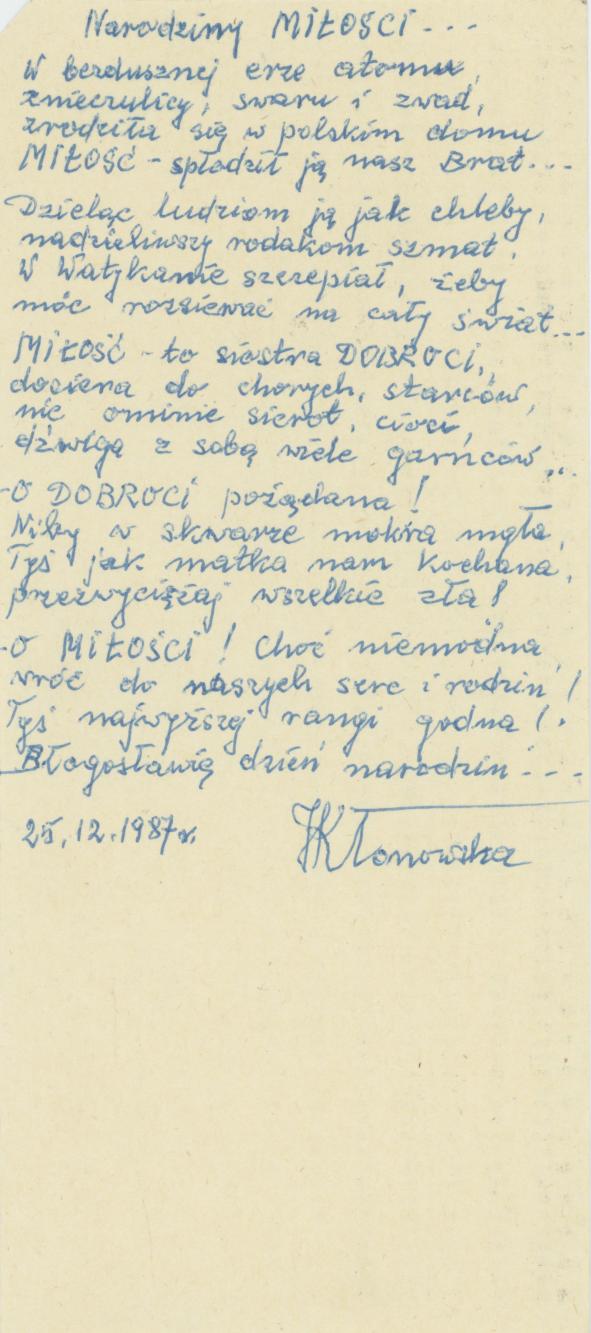 Narodziny MIŁOŚCI - - -
W bezdusznej erze atomu,
znieczulicy, swaru i zwad,
zrodziła się w polskim domu
MIŁOŚĆ - spłodził ją nasz Brat...
Dzieląc ludziom ją jak chleby,
nadzieliwszy rodakom szmat,
W Watykanie szczepiał, żeby
móc rozsiewać na cały świat...
MIŁOŚĆ - to siostra DOBROCI,
dociera do chorych, starców,
nie ominie sierot, cioci,
dźwiga z sobą wiele garńców...
-O DOBROCI pożądana!
Niby w skwarze mokra mgła,
Tyś jak matka nam kochana,
przezwyciężaj wszelkie zła!
-O MIŁOŚCI! Choć niemodna,
wróć do naszych serc i rodzin!
Tyś najwyższej rangi godna!
Błogosławię dzień narodzin - - -
25.12.1987r. Kłonowska